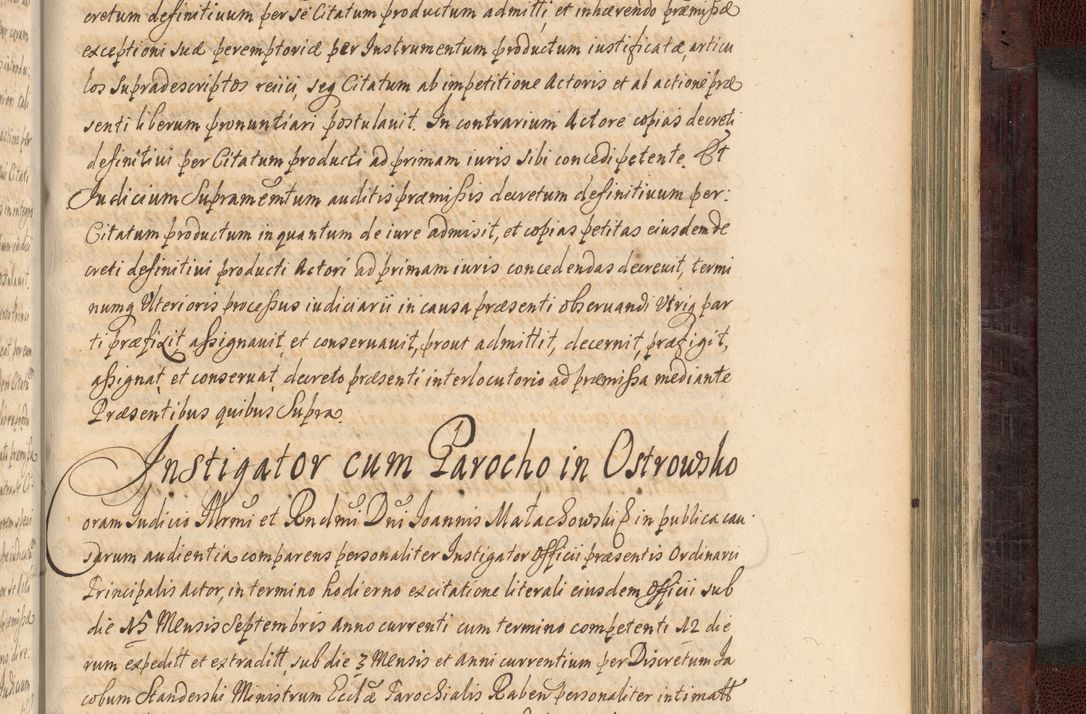 cretum definitiuum per se Citatum productum admitti, et inhærendo præmissæ
exceptioni suæ peremptoriæ per Instrumentum productum iustificatæ, articu
los supradescriptos reiici, seq Citatum ab impetitione Actoris et ab actione præ
senti liberum pronuntiari postulauit. In contrarium Actore copias decreti
definitiui per Citatum producti ad primam iuris sibi concedi petente. Et
Iudicium Supramemtum auditis præmissis decretum definitiuum per:
Citatum productum in quantum de iure admisit, et copias petitas eiusdem de
creti definitiui producti Actori ad primam iuris concedendas decreuit, termi
numq Ulterioris processus iudiciarii in causa præsenti obseruandi Utriq par
ti præfixit assignauit, et conseruauit, prout admittit, decernit, præfigit,
assignat, et conseruat, decreto præsenti interlocutorio ad præmissa mediante
Præsentibus quibus Supra.
Instigator cum Parocho in Ostrowsko
Coram Iudicio Illrmi et Rndmi Dni Ioannis Małachowski & in publica cau
sarum audientia comparens personaliter Instigator Officii præsentis Ordinarii
Principalis Actor, in termino hodierno ex citatione literali eiusdem Officii sub
die 15 Mensis Septembris anno currenti cum termino competenti 12 die
rum expeditt et extraditt, sub die 3 Mensis et Anni currentium per Discretum Ia
cobum Standerski Ministrum Ecclæ Parochialis Raben personaliter intimatt